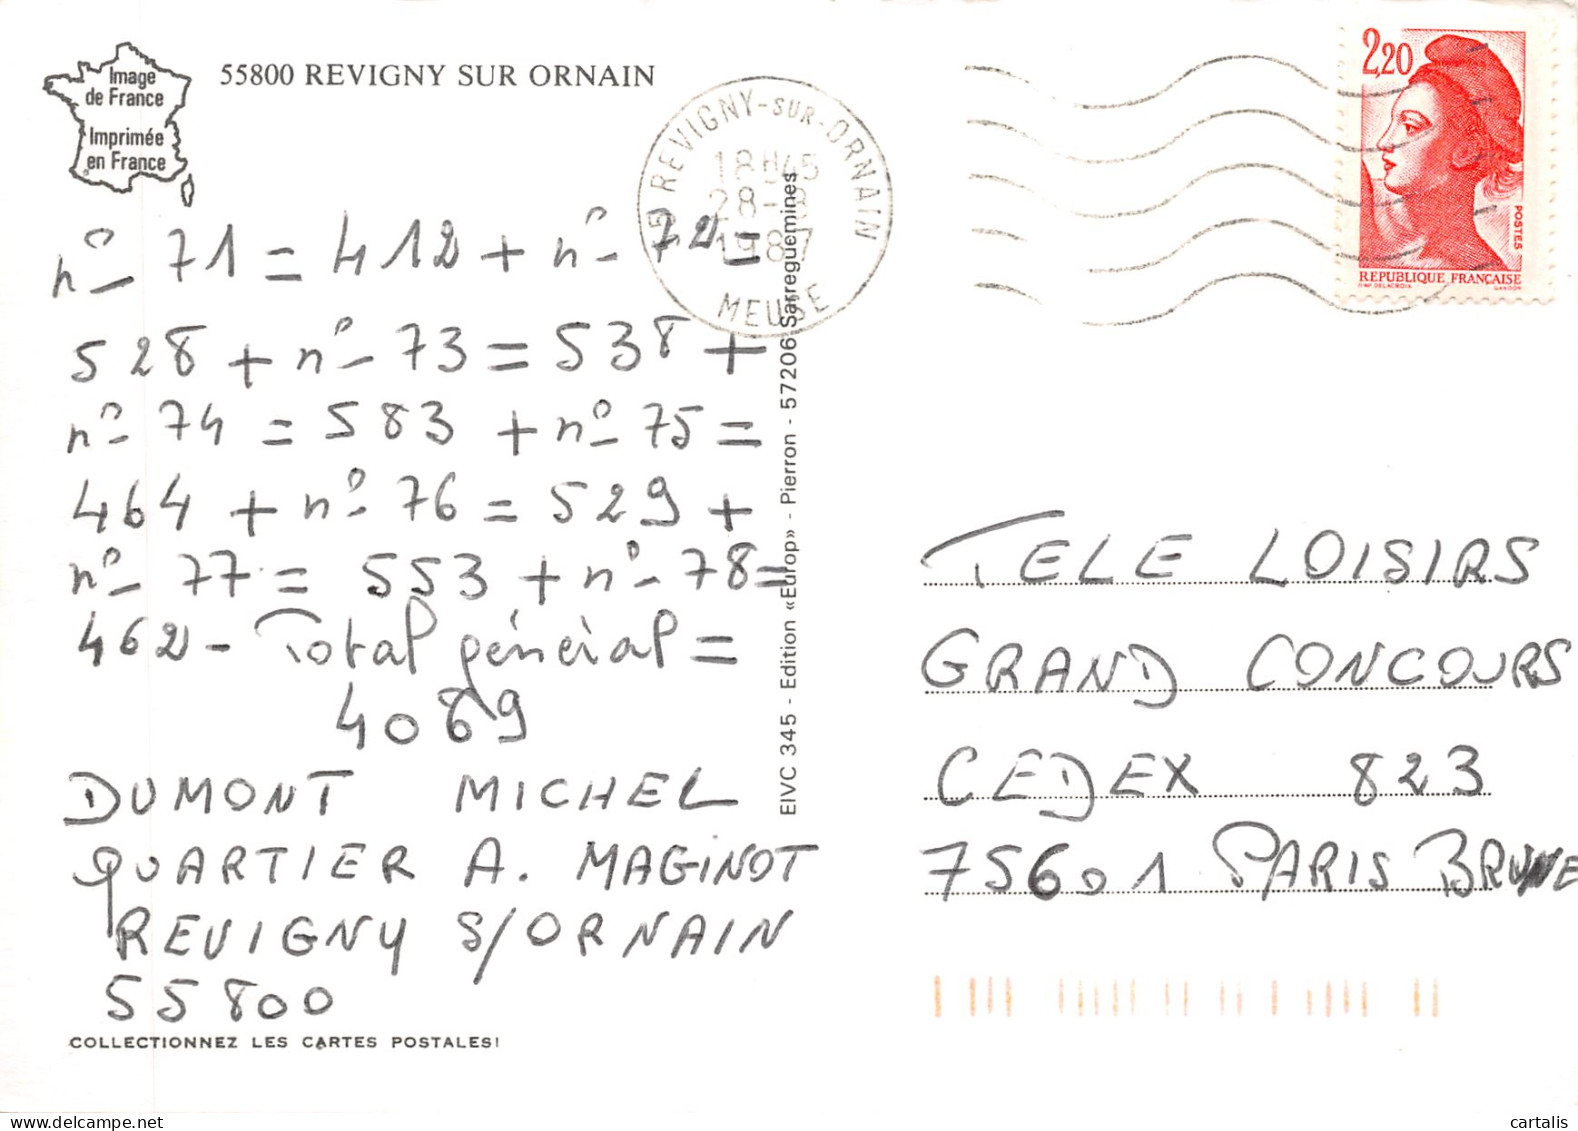 Image
de France
Imprimée
en France
55800 REVIGNY SUR ORNAIN
REVIGNY-SUR-ORNAIN
18H45
28-8
1987
MEUSE
2,20
POSTES
REPUBLIQUE FRANÇAISE
D'AP. DELACROIX GANDON
n° 71 = 412 + n° 72 =
528 + n° 73 = 538 +
n° 74 = 583 + n° 75 =
464 + n° 76 = 529 +
n° 77 = 553 + n° 78 =
462 - Total général =
4089
DUMONT MICHEL
QUARTIER A. MAGINOT
REVIGNY S/ORNAIN
55800
COLLECTIONNEZ LES CARTES POSTALES!
EIVC 345 - Edition «Europ» - Pierron - 57206 Sarreguemines
TELE LOISIRS
GRAND CONCOURS
CEDEX 823
75601 PARIS BRUNE
cartalis